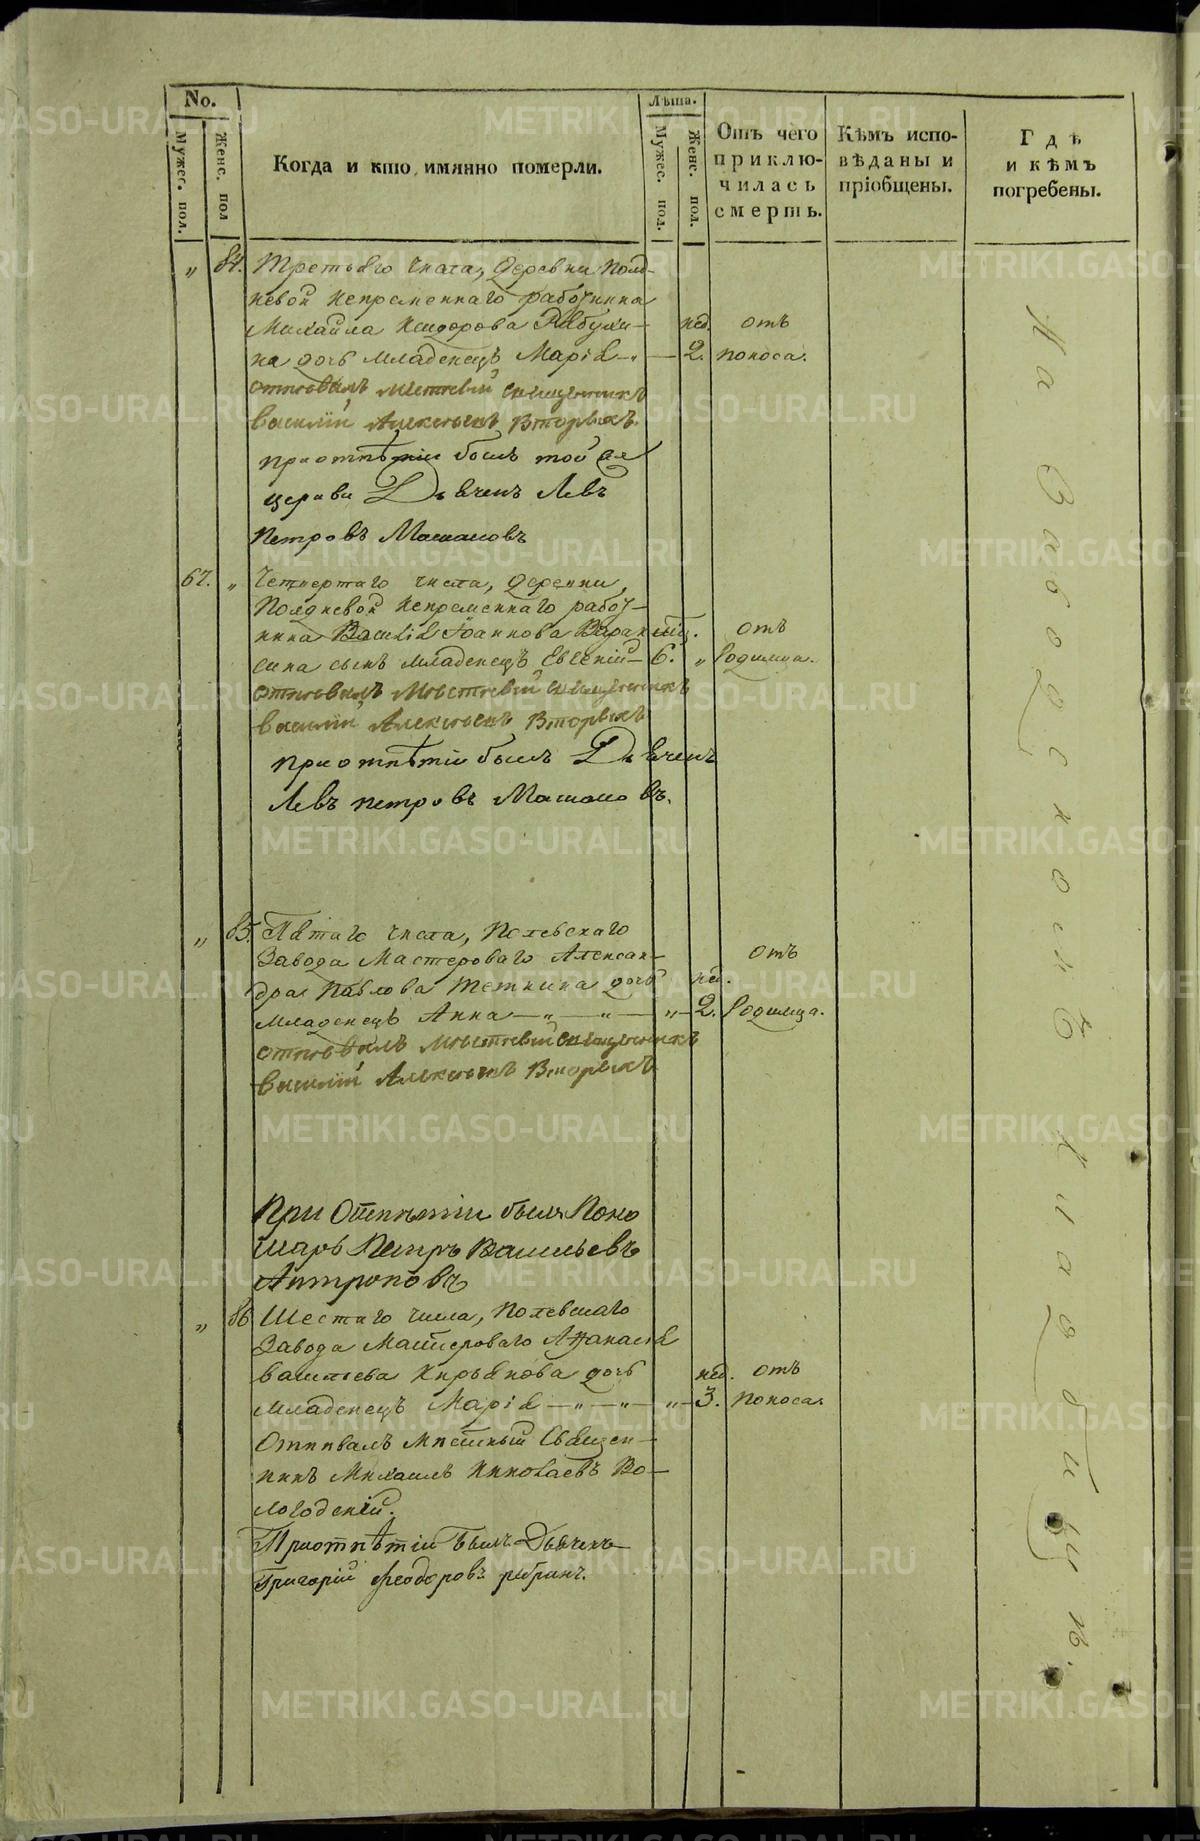 No.
Мужес. пол.
Женс. пол
Когда и кто имянно померли.
Лѣта.
Мужес. пол.
Женс. пол.
Отъ чего приключилась смерть.
Кѣмъ исповѣданы и пріобщены.
Гдѣ и кѣмъ погребены.
„ 84. Третьяго числа, деревни Полд-
невой непременнаго работника
Михайла Исидорова Рябухи- нед. отъ
на дочь младенецъ Марія — 2. поноса.
отпѣвалъ мѣстный священникъ
Василій Алексѣевъ Вторыхъ.
при отпѣтіи былъ той же
церкви Дьячекъ Левъ
Петровъ
67. „ Четвертаго числа, деревни
Полдневой непременнаго работ-
ника Василія Іоаннова мѣц. отъ
сина сынъ младенецъ Евгеній — 6. „ Родимца.
отпѣвалъ мѣстный священникъ
Василій Алексѣевъ Вторыхъ
при отпѣтіи былъ Дьячекъ
Левъ Петровъ
„ 85. Пятаго числа, Полевскаго
Завода Мастероваго Алексан- отъ
дра Павлова дочь нед.
младенецъ Анна — „ — „ — „ — 2. Родимца.
отпѣвалъ мѣстный священникъ
Василій Алексѣевъ Вторыхъ
При Отпѣтіи былъ Поно
марь Петръ Васильевъ
Антроповъ
„ 86 Шестаго числа, Полевскаго
Завода Мастероваго Афанасія
Васильева Кирьянова дочь нед. отъ
младенецъ Марія — „ — „ — „ — 3. поноса.
Отпѣвалъ мѣстный Священ-
никъ Михаилъ Николаевъ Во-
логодскій.
При отпѣтіи былъ Дьячекъ
Григорій Феодоровъ
На Заводскомъ кладбищѣ.
METRIKI.GASO-URAL.RU